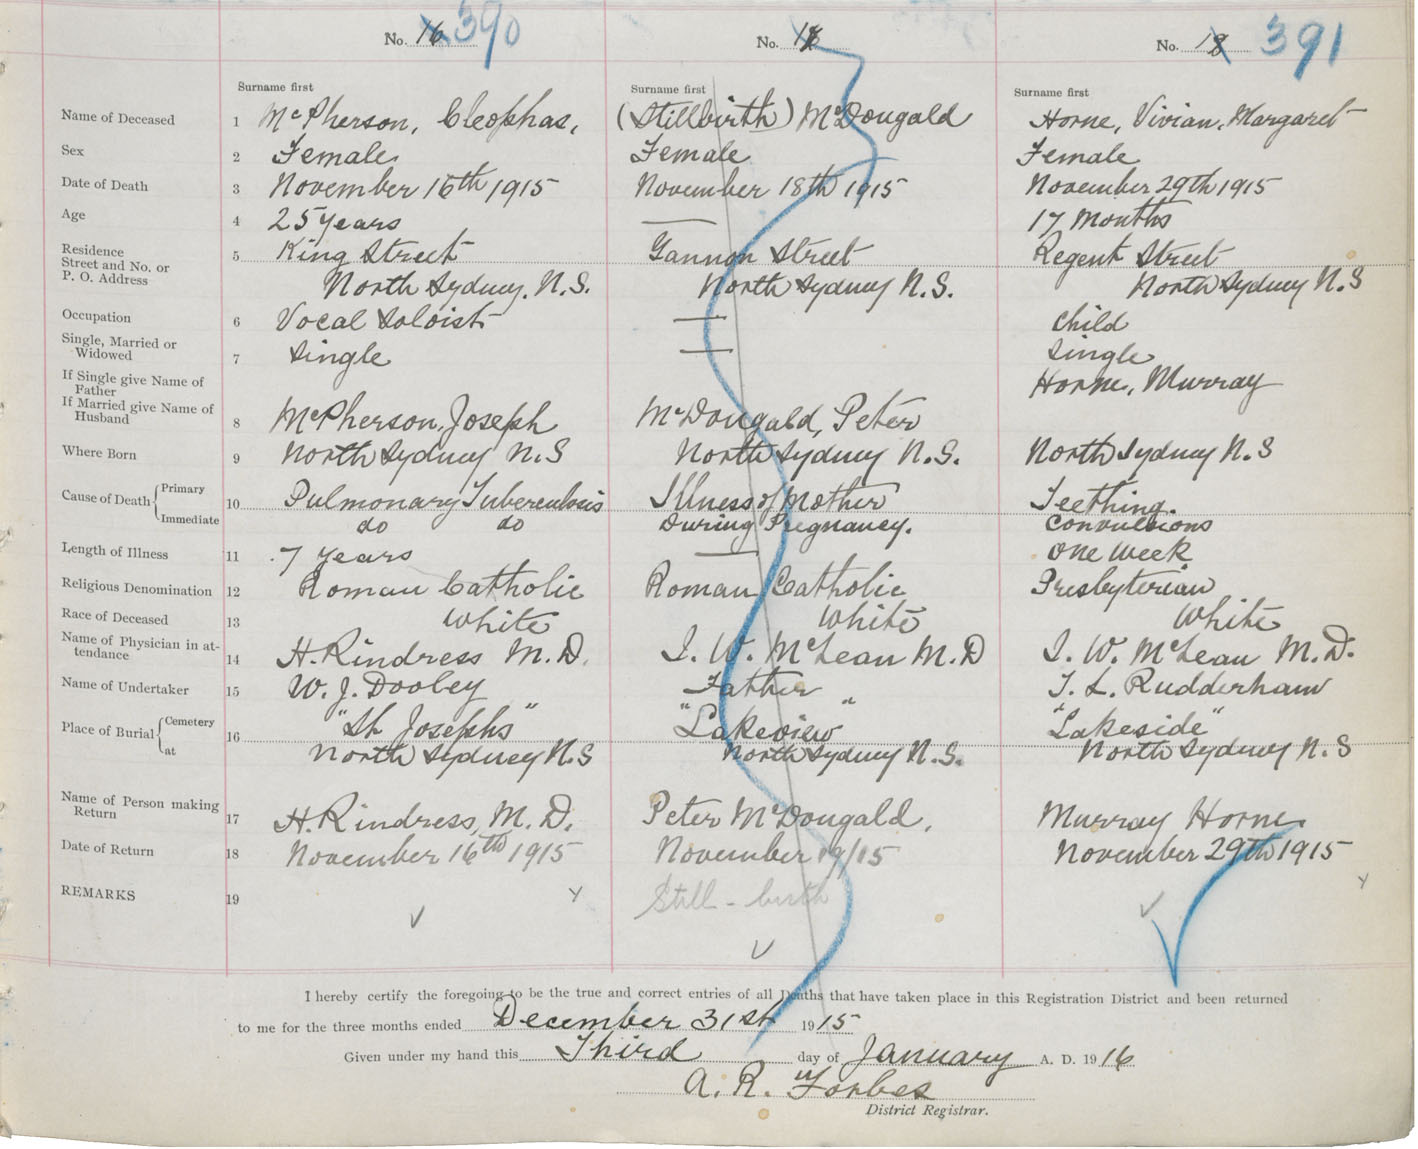 No. 16 390
No. 17
No. 18 391
Surname first
Surname first
Surname first
Name of Deceased 1 McPherson, Cleophas, (Stillbirth) McDougald Horne, Vivian, Margaret
Sex 2 Female Female Female
Date of Death 3 November 16th 1915 November 18th 1915 November 29th 1915
Age 4 25 years — 17 Months
Residence
Street and No. or
P. O. Address
5 King Street Gannon Street Regent Street
North Sydney. N.S. North Sydney N.S. North Sydney N.S
Occupation 6 Vocal Soloist — Child
Single, Married or
Widowed
7 Single — Single
If Single give Name of
Father
If Married give Name of
Husband
8 McPherson, Joseph McDougald, Peter Horne, Murray
Where Born 9 North Sydney N.S North Sydney N.S. North Sydney N.S
Cause of Death Primary 10 Pulmonary Tuberculosis Illness of Mother Teething.
Immediate do do During Pregnancy. Convulsions
Length of Illness 11 7 years — One Week
Religious Denomination 12 Roman Catholic Roman Catholic Presbyterian
Race of Deceased 13 White White White
Name of Physician in at-
tendance
14 H. Rindress M.D. I. W. McLean M.D I. W. McLean M.D.
Name of Undertaker 15 W. J. Dooley Father T. L. Rudderham
Place of Burial Cemetery 16 "St Josephs" "Lakeview" "Lakeside"
at North Sydney N.S North Sydney N.S. North Sydney N.S
Name of Person making
Return
17 H. Rindress, M.D. Peter McDougald. Murray Horne
Date of Return 18 November 16th 1915 November 19/15 November 29th 1915
REMARKS 19 Still-birth
I hereby certify the foregoing to be the true and correct entries of all Deaths that have taken place in this Registration District and been returned
to me for the three months ended December 31st 1915
Given under my hand this Third day of January A. D. 1916
A. R. Forbes
District Registrar.